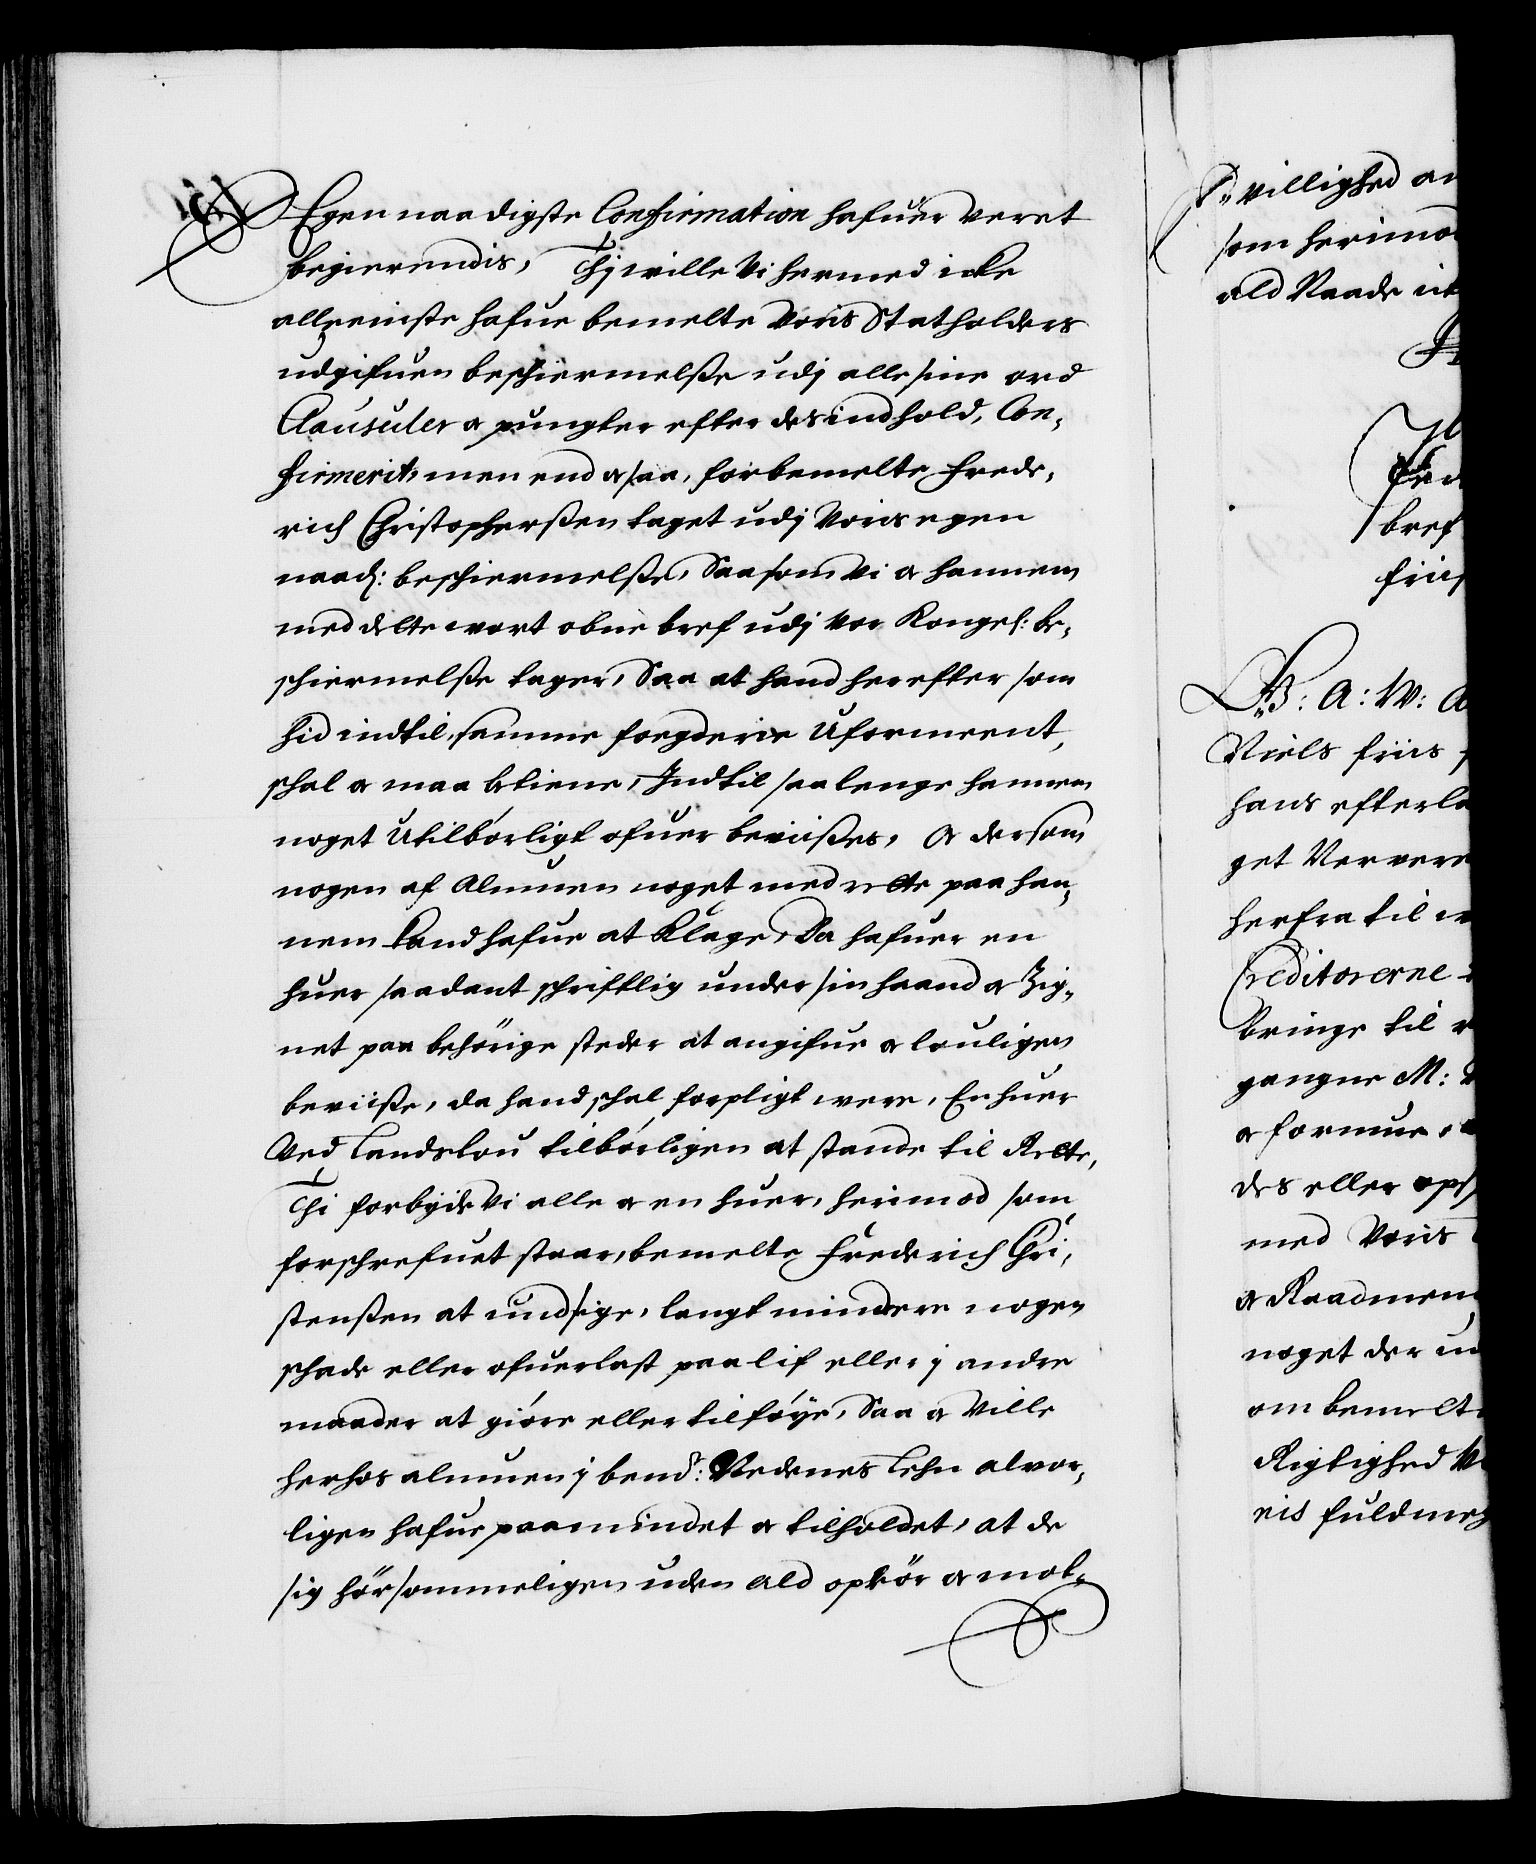 Egen naadigste Confirmation hafuer veret
begierendis, Thj wille Vi hermed icke
alleeniste hafue bemelte Voris Statholders
udgifuen beschiermelsse udj alle sine ord
Clausuler og puncter efter des indhold, Con-
firmerit, men end og saa, forbemelte Frede-
rich Christophersen taget udj Voris egen
naad: beschiermelsse, Saasom Vi og hannem
med dette wort obne bref udj Vor Kongel: be-
schiermelsse tager, Saa at hand herefter som
hid indtil, samme fogderie Uformeent,
schal og maa betiene, Indtil saa lenge hannem
noget Utilbørligt ofuer beviisses, Og dersom
nogen af Almuen noget med rette paa han-
nem kand hafue at Klage, Da hafuer en
huer saadant schriftlig under sin haand og Zig-
net paa behørige steder at angifue og louligen
beviisse, da hand schal forpligt were, En huer
Ved Landslou tilbørligen at stande til Rette,
Thi forbyde Vi alle og en huer, herimod som
forschrefuet staar, bemelte Frederich Chri-
stenssen at undsige, langt mindre nogen
schade eller ofuerlast paa lif eller j andre
maader at giøre eller tilføye, Saa og Ville
herhos almuen j bemd: Nedenes Lehn alvor-
ligen hafue paamindet og tilholdet, at de
sig hørsommeligen uden ald opkør og mot-
villighed an
som herimod
ald Naade
bref
friis
B: A: W: A
Niels friis
hans efterla
get Ververe
herfra til
Creditorerne
bringe til
gangne M:
og formue,
des eller
med Voris
og Raadmen
noget der
om bemelt
Rigtighed
ris fuldmeg